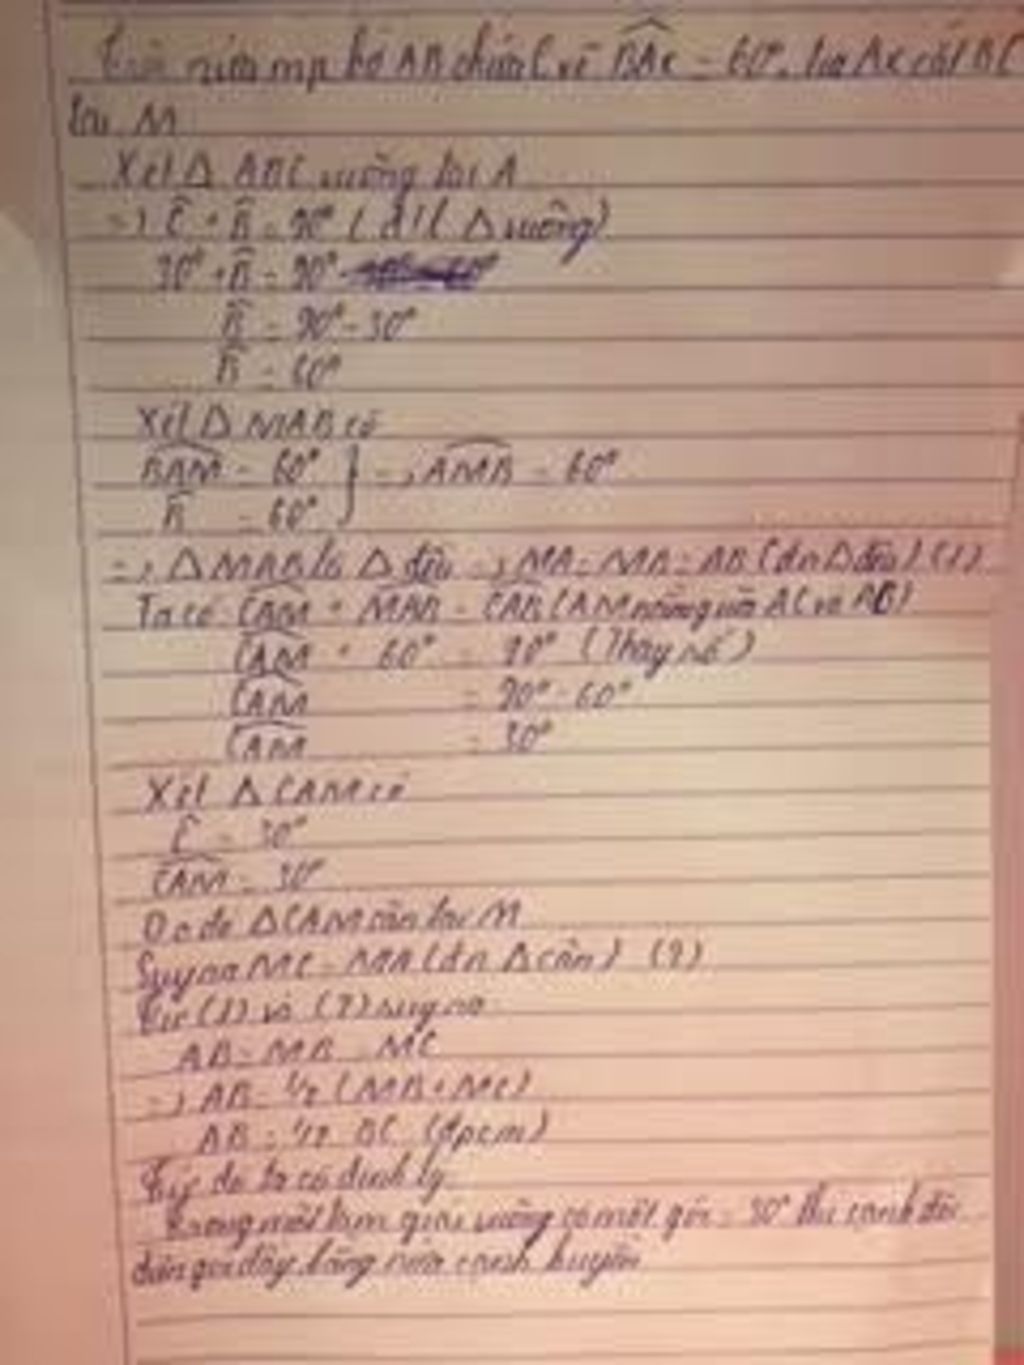 Trên nửa mp bờ AB chứa C vẽ BAx = 60°, tia Ax cắt BC
tại M
Xét Δ ABC vuông tại A
=> Ĉ + B̂ = 90° (đ/l Δ vuông)
30° + B̂ = 90°
B̂ = 90° - 30°
B̂ = 60°
Xét Δ MAB có
BAM = 60° } => AMB = 60°
B̂ = 60°
=> Δ MAB là Δ đều => MA = MB = AB (đn Δ đều) (1)
Ta có CAM + MAB = CAB (AM nằm giữa AC và AB)
CAM + 60° = 90° (Thay số)
CAM = 90° - 60°
CAM = 30°
Xét Δ CAM có
Ĉ = 30°
CAM = 30°
Do đó Δ CAM cân tại M
Suy ra MC = MA (đn Δ cân) (2)
Từ (1) và (2) suy ra
AB = MB = MC
=> AB = 1/2 (MB + MC)
AB = 1/2 BC (đpcm)
Từ đó ta có định lý
Trong một tam giác vuông có một góc = 30° thì cạnh đối
diện góc đấy bằng nửa cạnh huyền